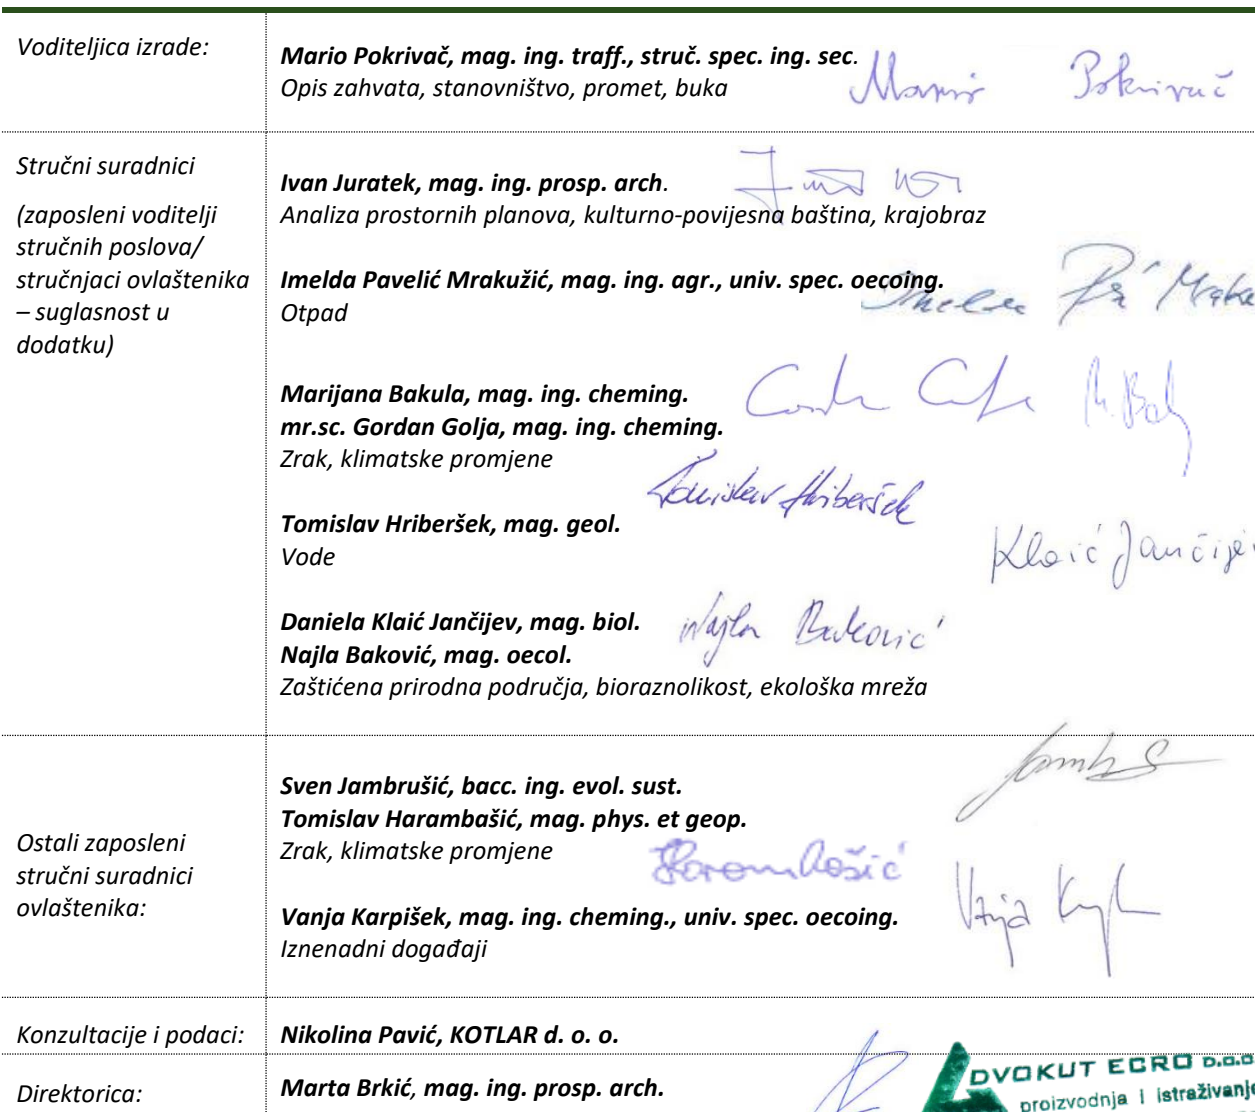 Voditeljica izrade:
Mario Pokrivač, mag. ing. traff., struč. spec. ing. sec.
Opis zahvata, stanovništvo, promet, buka
Mario Pokrivač
Stručni suradnici
(zaposleni voditelji
stručnih poslova/
stručnjaci ovlaštenika
– suglasnost u
dodatku)
Ivan Juratek, mag. ing. prosp. arch.
Analiza prostornih planova, kulturno-povijesna baština, krajobraz
Imelda Pavelić Mrakužić, mag. ing. agr., univ. spec. oecoing.
Otpad
Marijana Bakula, mag. ing. cheming.
mr.sc. Gordan Golja, mag. ing. cheming.
Zrak, klimatske promjene
Tomislav Hriberšek
Tomislav Hriberšek, mag. geol.
Vode
Klaić Jančijev
Daniela Klaić Jančijev, mag. biol.
Najla Baković, mag. oecol.
Najla Baković
Zaštićena prirodna područja, bioraznolikost, ekološka mreža
Ostali zaposleni
stručni suradnici
ovlaštenika:
Sven Jambrušić, bacc. ing. evol. sust.
Tomislav Harambašić, mag. phys. et geop.
Zrak, klimatske promjene
Harambašić
Vanja Karpišek, mag. ing. cheming., univ. spec. oecoing.
Iznenadni događaji
Konzultacije i podaci:
Nikolina Pavić, KOTLAR d. o. o.
Direktorica:
Marta Brkić, mag. ing. prosp. arch.
DVOKUT ECRO D.O.O
proizvodnja i istraživanje